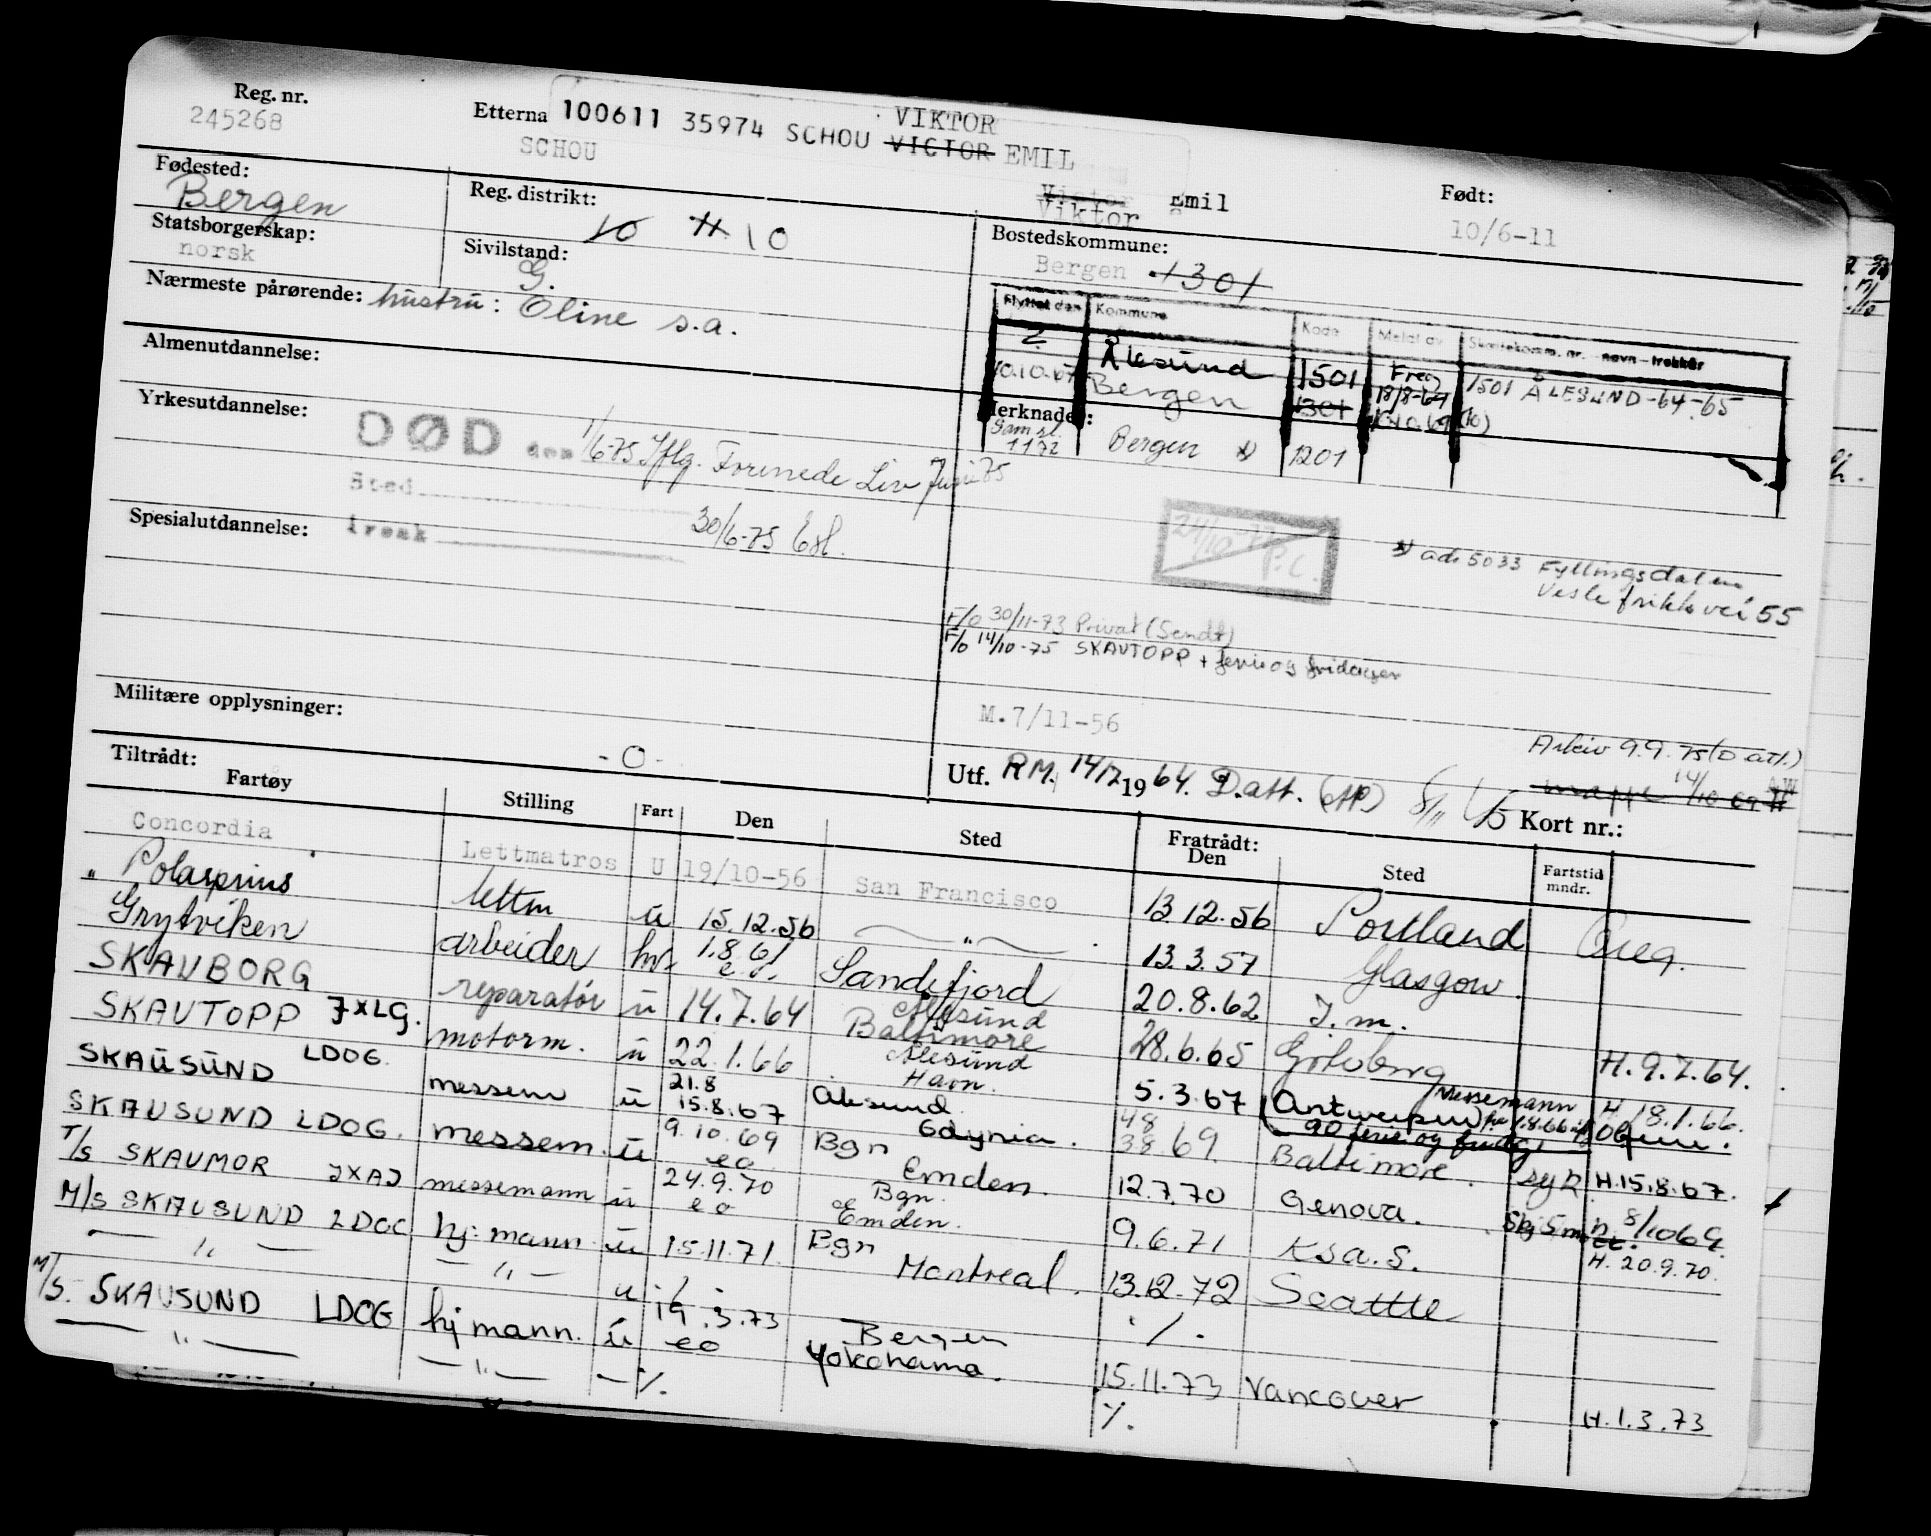 Reg. nr.
245268
Etterna 100611 35974 SCHOU VICTOR EMIL
VIKTOR
SCHOU
Victor Emil
Viktor
Født:
10/6-11
Fødested:
Bergen
Reg. distrikt:
10 H 10
Statsborgerskap:
norsk
Sivilstand:
G.
Bostedskommune:
Bergen 1301
Nærmeste pårørende: hustru: Oline s.a.
Flyttet den Kommune Kode Meldt av Skattekomm. nr. - navn - trekkår
? Ålesund 1501 Freg 18/8-64 1501 ÅLESUND-64-65
10.10.67 Bergen 1301
Merknader:
Sam sl. 1172 Bergen x) 1201
Almenutdannelse:
Yrkesutdannelse:
DØD den 1/6-75 Iflg. Forenede Liv Juni 75
Sted
Årsak 30/6-75
Spesialutdannelse:
24/10-77 P.C.
x) adr 5033 Fyllingsdalen
Vesle frikks vei 55
F/o 30/11-73 Privat (Sendt)
F/o 14/10-75 SKAUTOPP + ferie og fridager
Militære opplysninger:
M. 7/11-56
- 0 -
Arkiv 9.9.75 (D att.)
Utf. RM. 14/7 1964. D.att.
mappe 14/10 69
Kort nr.:
Tiltrådt:
Fartøy Stilling Fart Den Sted Fratrådt: Den Sted Fartstid mndr.
Concordia Lettmatros U 19/10-56 San Francisco 13.12.56 Portland Oreg.
" Polarprins lettm ü 15.12.56 — " — 13.3.57 Glasgow.
Grytviken arbeider hv. 1.8.61 Sandefjord 20.8.62 I.m.
e.o. Ålesund
SKAUBORG reparatør ü 14.7.64 Baltimore 28.6.65 Göteborg H. 9.7.64.
SKAUTOPP JXLG. motorm. ü 22.1.66 Ålesund Havn. 5.3.67 Antwerpen H. 18.1.66.
Messemann fra 1.8.66
SKAUSUND LDOG. messem ü 21.8 15.8.67 Ålesund Gdynia. 4869 3869 Baltimore. H. 15.8.67.
90 ferie og fridg.
SKAUSUND LDOG. messem. ü 9.10.69 eo Bgn Emden. 12.7.70 Genova. H. 8/10 69.
T/S SKAUMOR JXAJ messemann ü 24.9.70 eo Bgn. Emden. 9.6.71 Ksa. S. Skj 5 m H. 20.9.70.
M/S SKAUSUND LDOG hj. mann ü 15.11.71. Bgn Montreal. 13.12-72 Seattle
— " — — " — ü ./. ./.
M/S. SKAUSUND LDOG hj mann. ü 19.3.73 eo Bergen Yokohama. 15.11.73 Vancouver H. 1.3.73
— " — — " — — ./. ./.